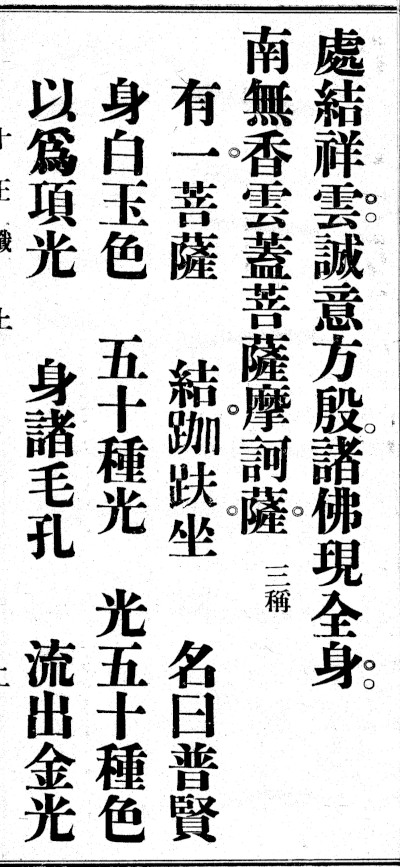 處結祥雲誠意方殷諸佛現全身
南無香雲蓋菩薩摩訶薩 三稱
有一菩薩 結跏趺坐 名曰普賢
身白玉色 五十種光 光五十種色
以為項光 身諸毛孔 流出金光